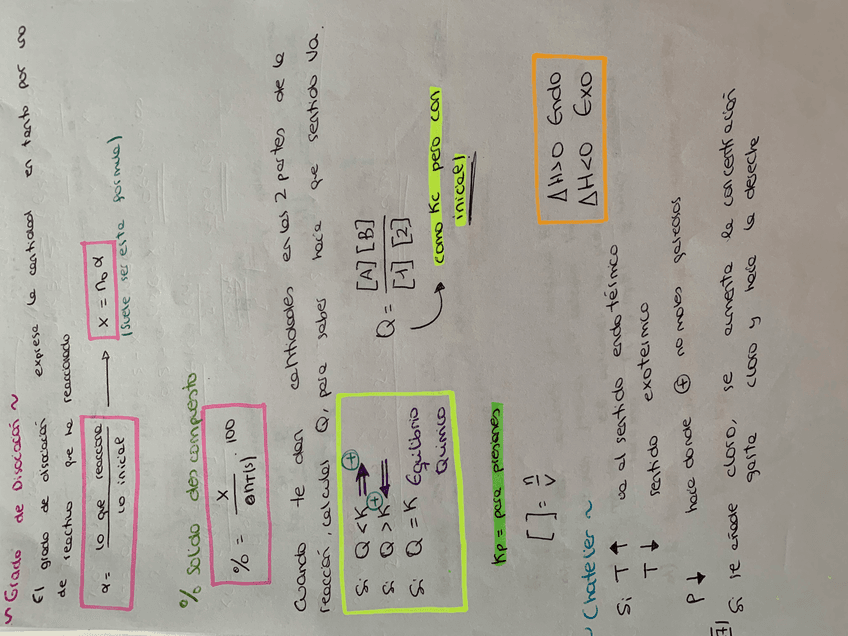 ~ Grado de Disociación ~
El grado de disociación expresa la cantidad en tanto por uno
de reactivo que ha reaccionado
α = lo que reacciona / lo inicial → x = n₀ α
(suele ser esta formula)
% Solido descompuesto
% = x / n(s) · 100
Cuando te dan cantidades en las 2 partes de la
reacción, calculas Q, para saber hacia que sentido va.
Si Q < K ⊕ ⇒
Si Q > K ⊕ ⇐
Si Q = K Equilibrio
Químico
Q = [A] [B] / [1] [2]
como Kc pero con
inicial
Kp = para presiones
[ ] = n / V
ΔH>0 Endo
ΔH<0 Exo
~ Chatelier ~
Si T ↑ va al sentido endotérmico
T ↓ sentido exotermico
P ↓ hacia donde ⊕ no moles gaseosos
Si se añade cloro, se aumenta la concentración
gasta cloro y hacia la derecha